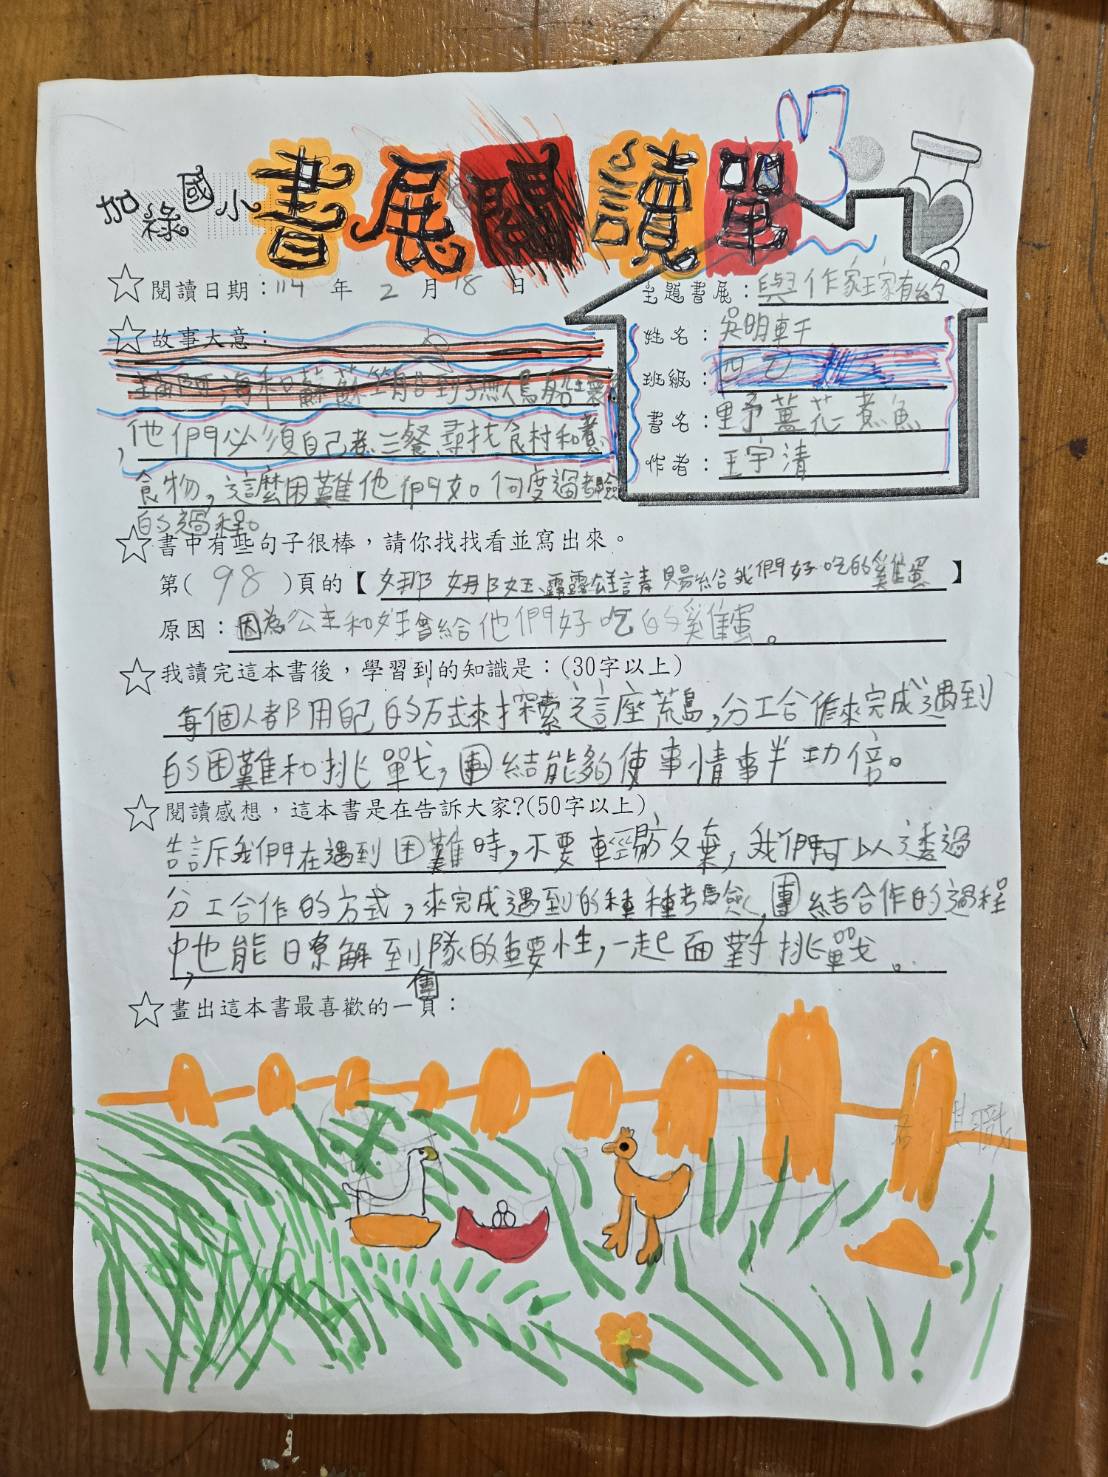 加祿國小 書展閱讀單
閱讀日期：114 年 2 月 18 日
主題書展：與作家王家有約
故事大意：
姓名：吳明軒
班級：四乙
書名：野薑花煮魚
作者：王宇清
海和蘇蘇
他們必須自己煮三餐、尋找食材和煮
食物，這麼困難他們如何度過考驗
的過程。
書中有些句子很棒，請你找找看並寫出來。
第( 98 )頁的【 娜娜女王、露露公主請賜給我們好吃的雞蛋 】
原因：因為公主和女王會給他們好吃的雞蛋。
我讀完這本書後，學習到的知識是：(30字以上)
每個人都用自己的方式來探索這座荒島，分工合作來完成遇到
的困難和挑戰，團結能夠使事情事半功倍。
閱讀感想，這本書是在告訴大家?(50字以上)
告訴我們在遇到困難時，不要輕易放棄，我們可以透過
分工合作的方式，來完成遇到的種種考驗，團結合作的過程
中，也能日瞭解到團隊的重要性，一起面對挑戰。
畫出這本書最喜歡的一頁：